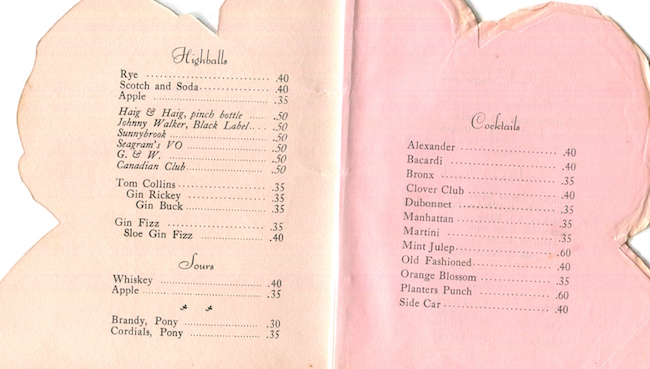 Highballs
Rye .40
Scotch and Soda .40
Apple .35
Haig & Haig, pinch bottle .50
Johnny Walker, Black Label .50
Sunnybrook .50
Seagram's VO .50
G. & W. .50
Canadian Club .50
Tom Collins .35
Gin Rickey .35
Gin Buck .35
Gin Fizz .35
Sloe Gin Fizz .40
Sours
Whiskey .40
Apple .35
Brandy, Pony .30
Cordials, Pony .35
Cocktails
Alexander .40
Bacardi .40
Bronx .35
Clover Club .40
Dubonnet .35
Manhattan .35
Martini .35
Mint Julep .60
Old Fashioned .40
Orange Blossom .35
Planters Punch .60
Side Car .40